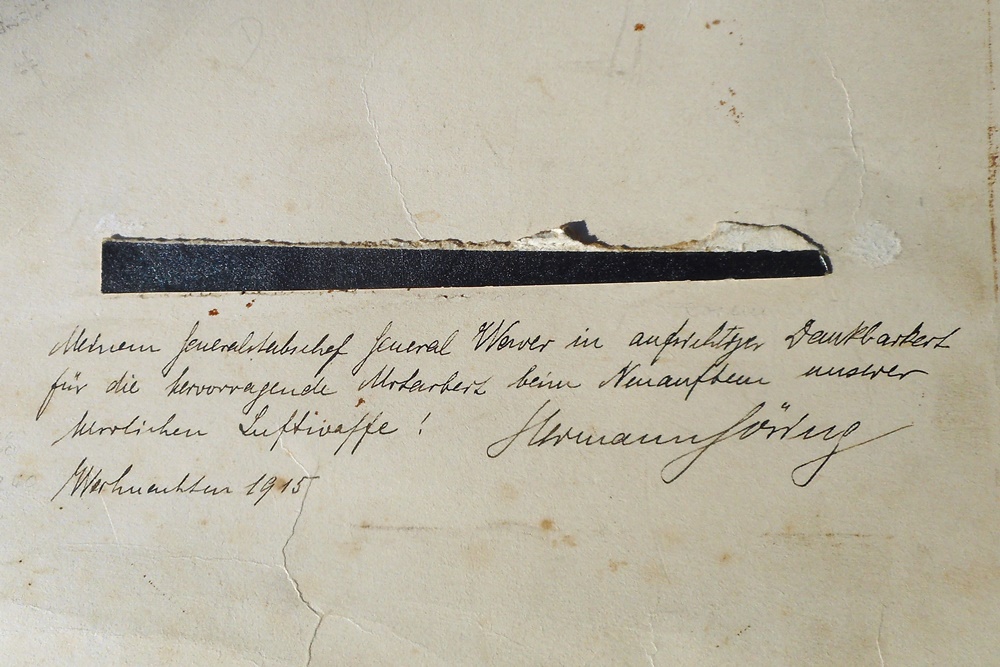 Meinem Generalstabschef General Wever in aufrichtiger Dankbarkeit
für die hervorragende Mitarbeit beim Neuaufbau unserer
herrlichen Luftwaffe! Hermann Göring
Weihnachten 1915